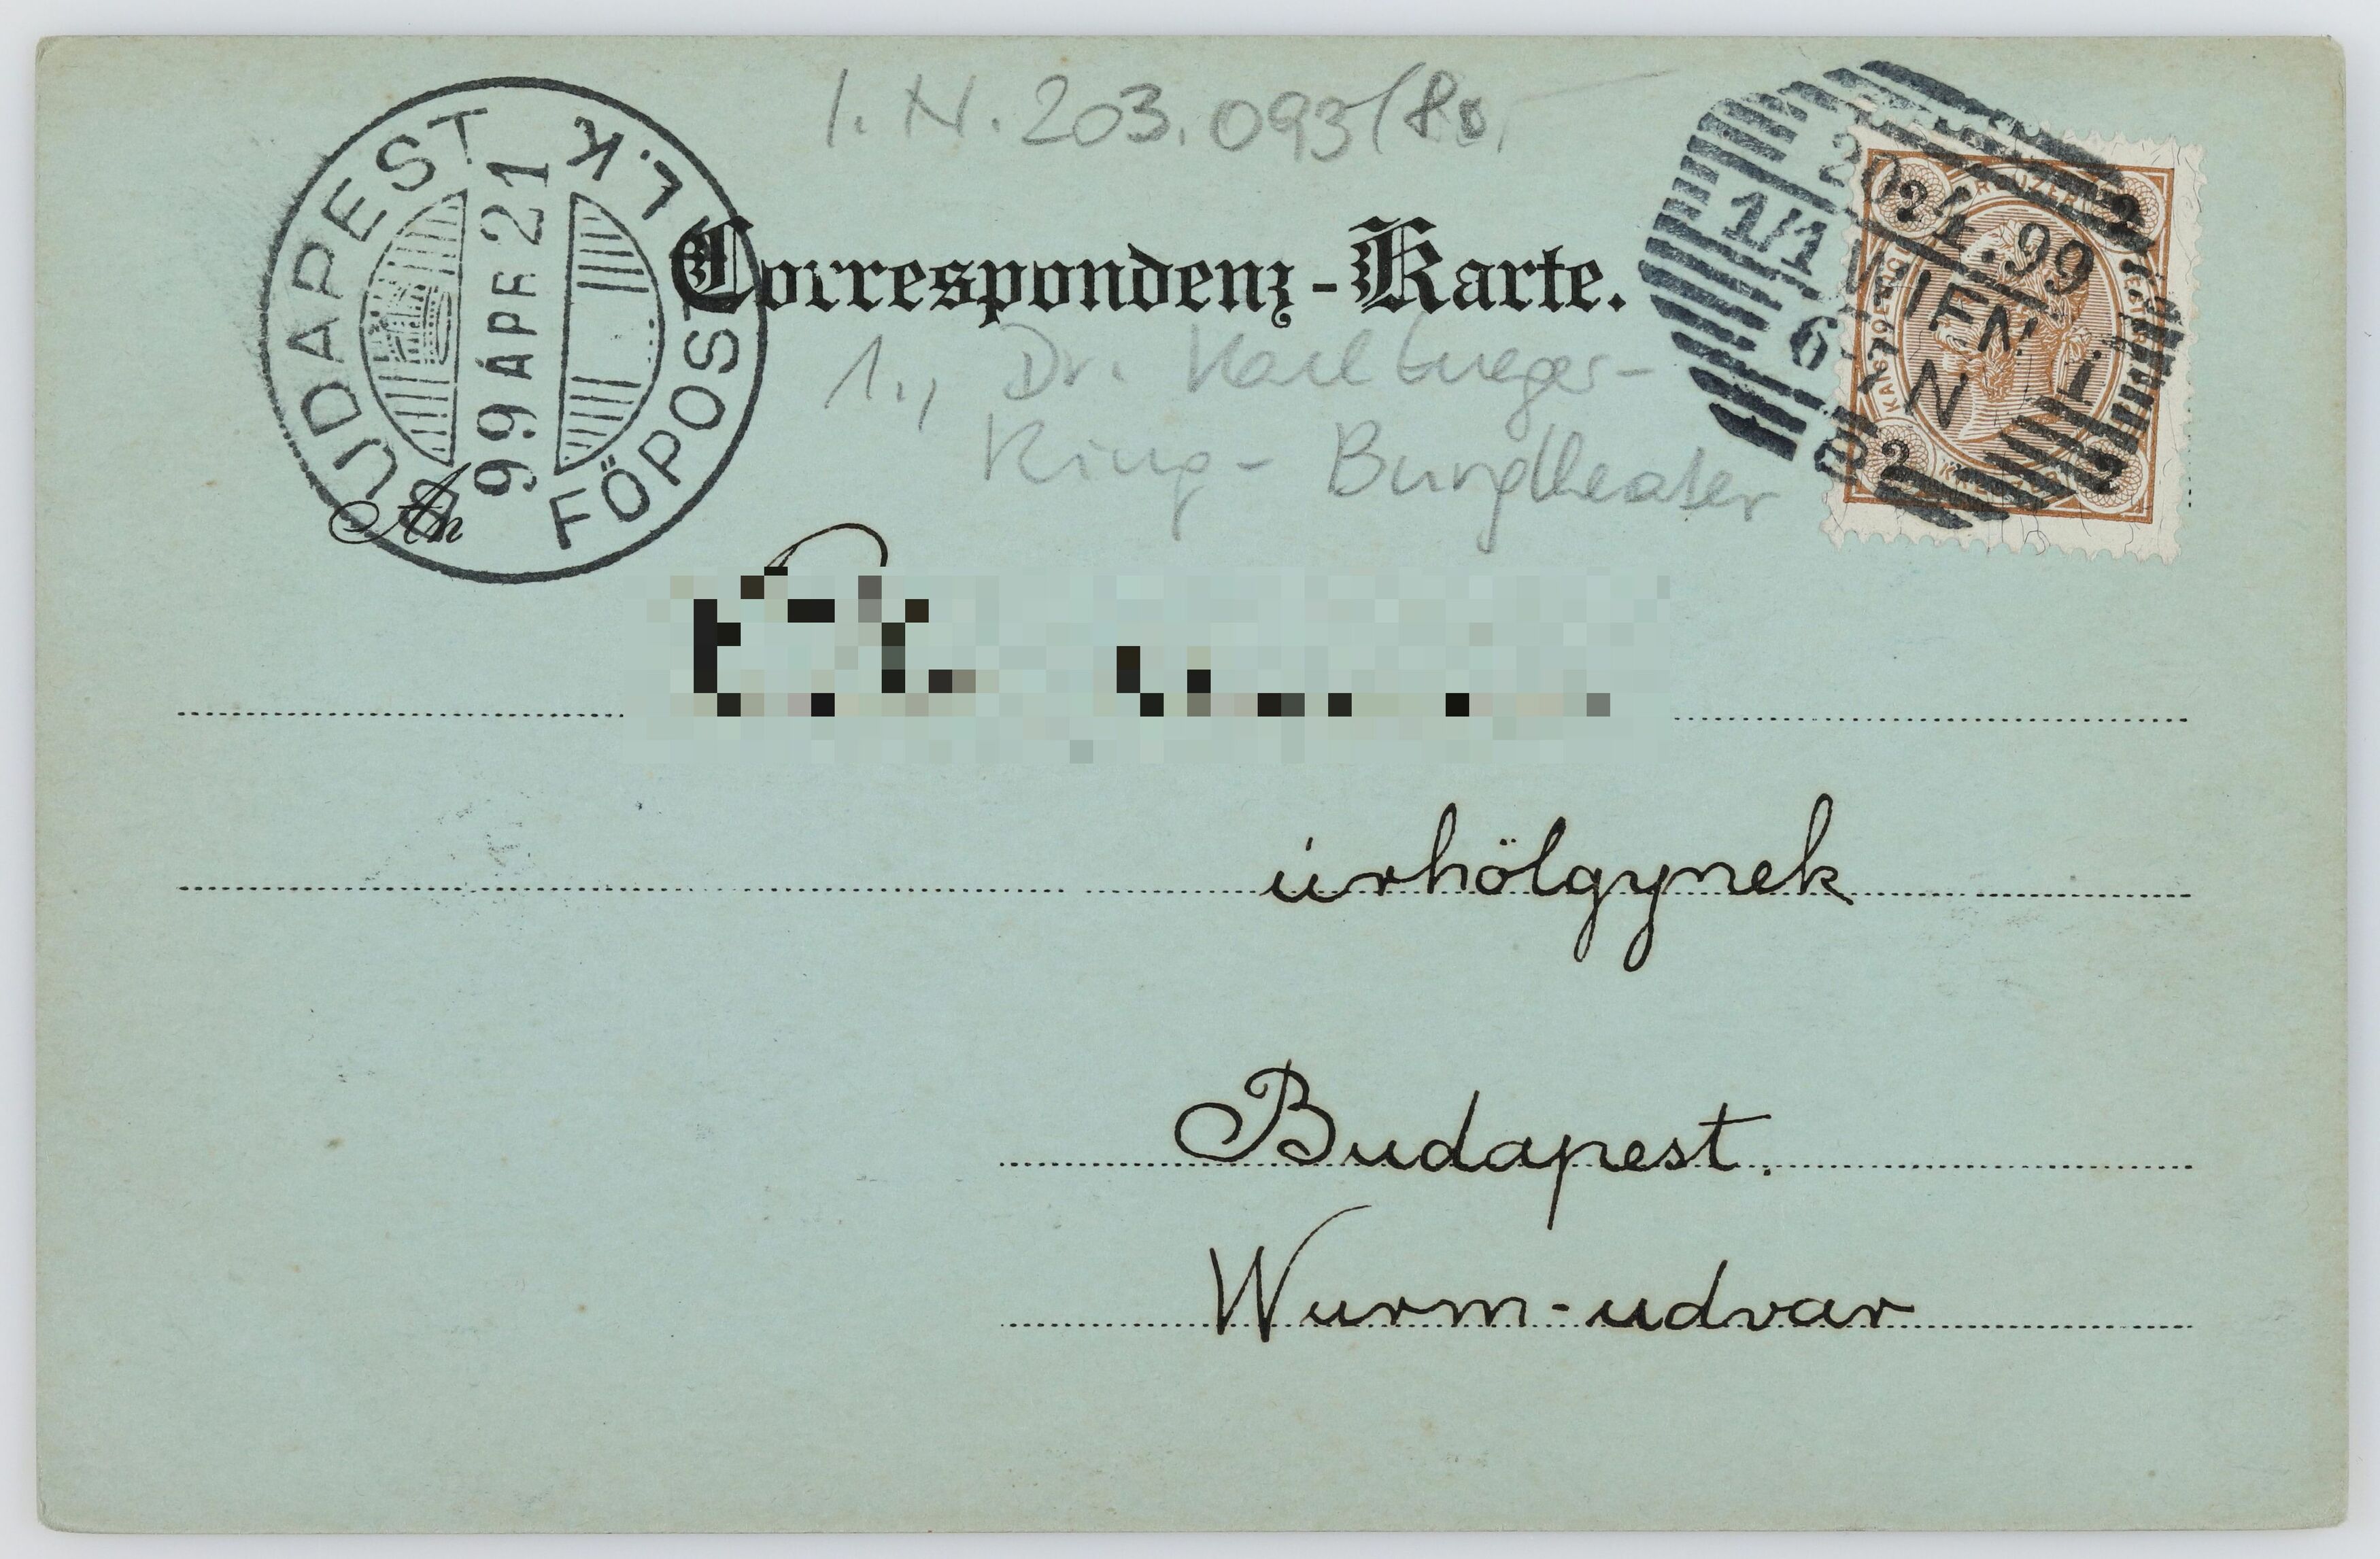 I. N. 203.093/80.-
Correspondenz-Karte.
1., Dr. Karl Lueger-
Ring - Burgtheater
BUDAPEST
FŐPOST
99 ÁPR 21
20.4.99
1/1 WIEN 1
6-7 N
2 2
2 2
An
úrhölgynek
Budapest.
Wurm-udvar